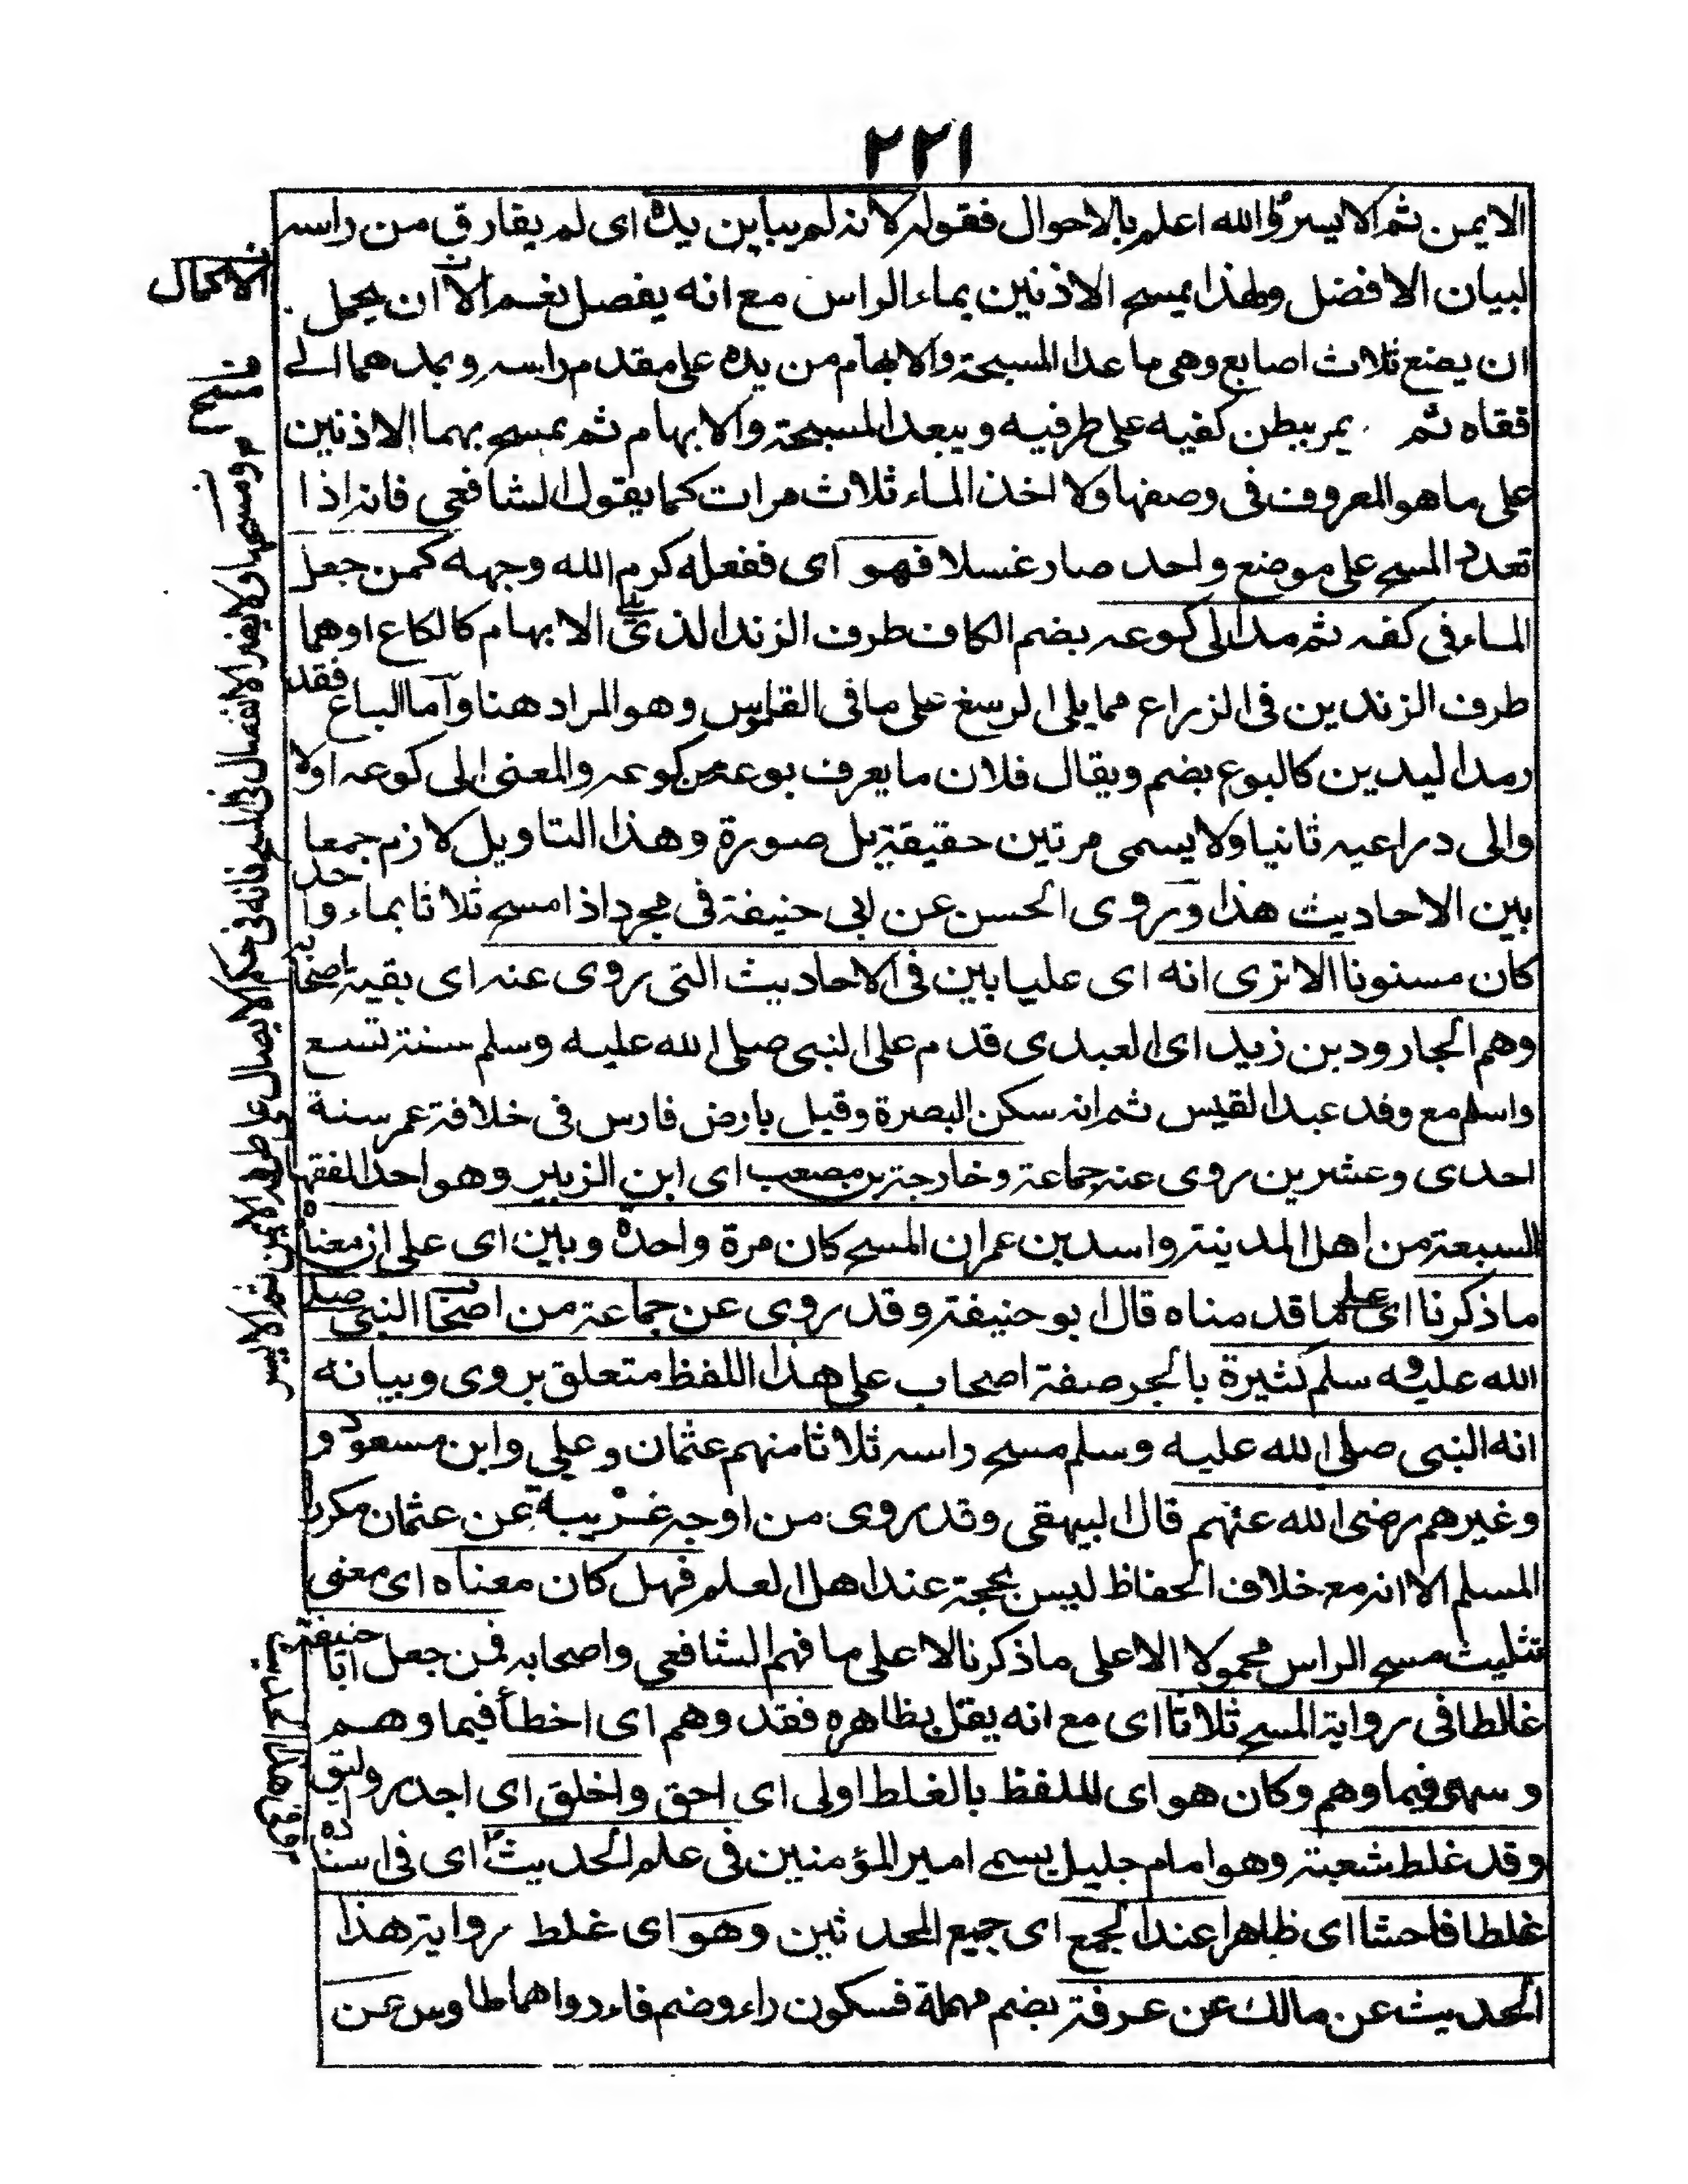 ٢٢١
الايمن ثم الايسر والله اعلم بالاحوال فقوله لانه لم يباين يده اى لم يفارق من راسه
لبيان الافضل ولهذا يمسح الاذنين بماء الراس مع انه يفصل نعم الا ان يحمل
الاكمال
ان يضع ثلاث اصابع وهى ما عدا المسبحة والابهام من يده على مقدم راسه ويمدهما الى
ققاه ثم يمر ببطن كفيه على طرفيه ويبعد المسبحة والابهام ثم يمسح بهما الاذنين
على ما هو المعروف فى وصفها ولا اخذ الماء ثلاث مرات كما يقول الشافعى فانه اذا
تعدد المسح على موضع واحد صار غسلا فهو اى ففعله كرم الله وجهه كمن جعل
الماء فى كفه ثم مد الى كوعه بضم الكاف طرف الزند الذى يلى الابهام كالكاع اوهما
طرف الزندين فى الزراع مما يلى الرسغ على ما فى القاموس وهو المراد هنا واما الباع فقد
رمد اليدين كالبوع بضم ويقال فلان ما يعرف بوعه من كوعه والمعنى الى كوعه اولا
والى دراعيه ثانيا ولا يسمى مرتين حقيقة بل صورة وهذا التاويل لازم جمعا
بين الاحاديث هذا وروى الحسن عن ابى حنيفة فى مجرد اذا مسح ثلاثا بماء واحد
كان مسنونا الا ترى انه اى عليا بين فى الاحاديث التى روى عنه اى بقية اصحابه
وهم الجارود بن زيد اى العبدى قدم على النبى صلى الله عليه وسلم سنة تسع
واسلم مع وفد عبد القيس ثم انه سكن البصرة وقيل بارض فارس فى خلافة عمر سنة
احدى وعشرين روى عنه جماعة وخارجة بن مصعب اى ابن الزبير وهو احد الفقهاء
السبعة من اهل المدينة واسد بن عمر ان المسح كان مرة واحدة وبين اى على ان معناه
ما ذكرنا اى على ما قدمناه قال ابو حنيفة وقد روى عن جماعة من اصحاب النبى صلى
الله عليه وسلم كثيرة بالجر صفة اصحاب على هذا اللفظ متعلق بروى وبيانه
انه النبى صلى الله عليه وسلم مسح راسه ثلاثا منهم عثمان وعلى وابن مسعود و
وغيرهم رضى الله عنهم قال البيهقى وقد روى من اوجه غريبة عن عثمان مكررا
المسلم الا انه مع خلاف الحفاظ ليس بحجة عند اهل العلم فهل كان معناه اى معنى
تثليث مسح الراس محمولا الا على ما ذكرنا لا على ما فهم الشافعى واصحابه فمن جعل ابا حنيفة
غالطا فى رواية المسح ثلاثا اى مع انه يقل بظاهره فقد وهم اى اخطأ فيما وهم
وسهى فيما وهم وكان هو اى اللفظ بالغلط اولى اى احق واخلق اى اجدر وليق
وقد غلط شعبة وهو امام جليل يسمى امير المؤمنين فى علم الحديث اى فى اسناده
غلطا فاحشا اى ظاهرا عند الجمع اى جميع المحدثين وهو اى غلط رواية هذا
الحديث عن مالك عن عرفة بضم مهملة فسكون راء وضم فاء رواهما طاوس عن
ومسحها ولا يضر الانفصال فى المسح فانه فى حكم الاتصال على طرفه الايمن ثم الايسر